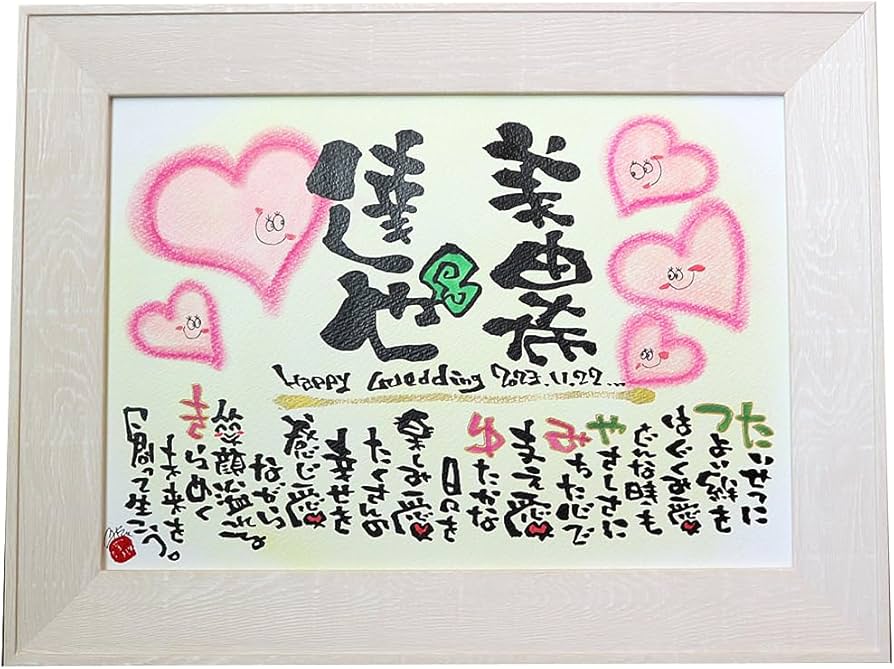 美由希
&
達也
Happy Wedding 2023.11.22...
たいせつに
つよい絆を
はぐくみ愛
どんな時も
やさしさに
みちた心で
支え愛
ゆたかな
日々を
楽しみ愛
たくさんの
幸せを
感じ愛
ながら
笑顔溢れる。
きらめく
未来を。
創って生こう。